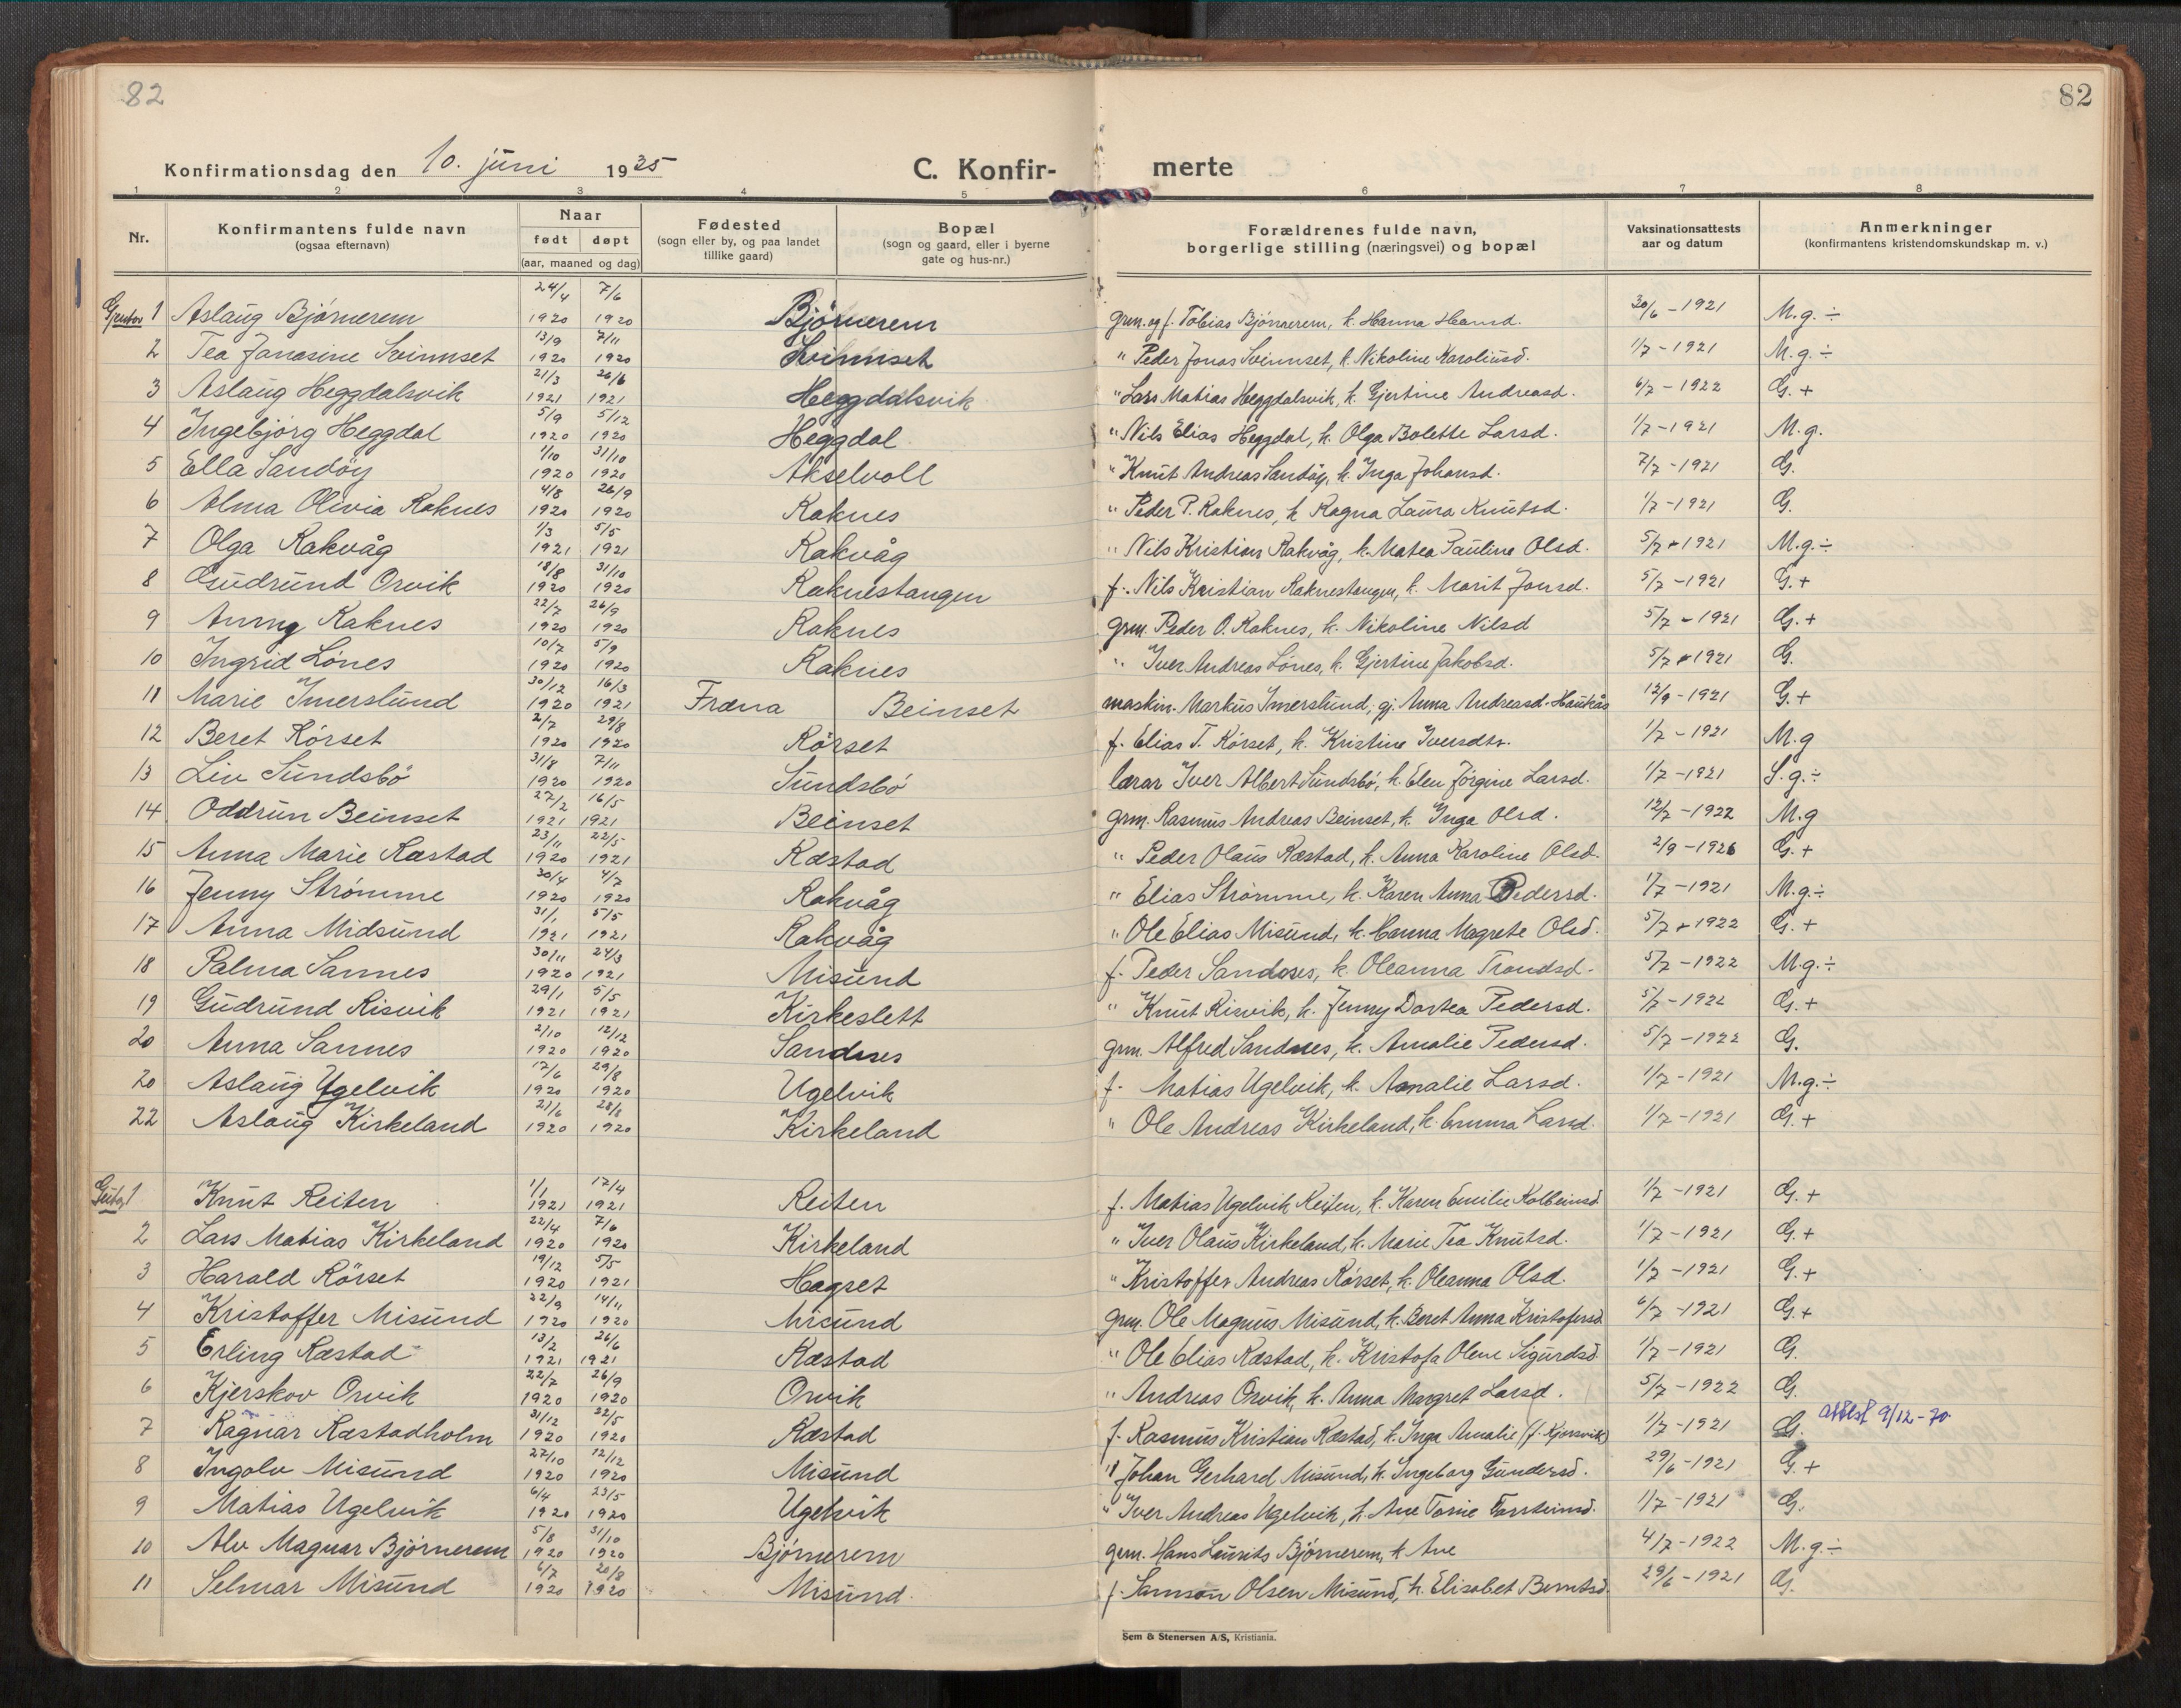 82
82
Konfirmationsdag den 10. juni 1935
C. Konfir-
merte
1 2 3 4 5 6 7 8
Nr.
Konfirmantens fulde navn
(ogsaa efternavn)
Naar
født døpt
(aar, maaned og dag)
Fødested
(sogn eller by, og paa landet
tillike gaard)
Bopæl
(sogn og gaard, eller i byerne
gate og hus-nr.)
Forældrenes fulde navn,
borgerlige stilling (næringsvei) og bopæl
Vaksinationsattests
aar og datum
Anmerkninger
(konfirmantens kristendomskundskap m. v.)
1 Aslaug Bjørnerem 24/4 1920 7/6 1920 Bjørnerem grm. og f. Tobias Bjørnerem, k. Hanna Hansd. 30/6 - 1921 M.g. ÷
2 Tea Janasine Svinnset 13/9 1920 7/11 1920 Svinnset " Peder Jonas Svinnset, k. Nikoline Karoliusd. 1/7 - 1921 M.g. ÷
3 Aslaug Heggdalsvik 21/3 1921 26/6 1921 Heggdalsvik " Lars Matias Heggdalsvik, k. Gjertine Andreasd. 6/7 - 1922 G. +
4 Ingebjørg Heggdal 5/9 1920 5/12 1920 Heggdal " Nils Elias Heggdal, k. Olga Bolette Larsd. 1/7 - 1921 M.g.
5 Ella Sandøy 1/10 1920 31/10 1920 Akselvoll " Knut Andreas Sandøy, k. Inga Johansd. 7/7 - 1921 G.
6 Alma Olivia Raknes 4/8 1920 26/9 1920 Raknes " Peder P. Raknes, k. Ragna Laura Knutsd. 1/7 - 1921 G.
7 Olga Rakvåg 1/3 1921 5/5 1921 Rakvåg " Nils Kristian Rakvåg, k. Matea Pauline Olsd. 5/7 - 1921 M.g. ÷
8 Gudrund Orvik 18/8 1920 31/10 1920 Raknestangen f. Nils Kristian Raknestangen, k. Marit Jonsd. 5/7 - 1921 G. +
9 Anny Raknes 22/7 1920 26/9 1920 Raknes grm. Peder O. Raknes, k. Nikoline Nilsd 5/7 - 1921 G. +
10 Ingrid Lönes 10/7 1920 5/9 1920 Raknes " Iver Andreas Lönes, k. Gjertine Jakobsd. 5/7 - 1921 G.
11 Marie Imerslund 30/12 1920 16/3 1921 Fræna Beinset maskin. Markus Imerslund, gj. Anna Andreasd. Haukås 12/9 - 1921 G. +
12 Beret Rørset 2/7 1920 29/8 1920 Rørset f. Elias T. Rørset, k. Kristine Iversdtr. 1/7 - 1921 M.g
13 Liv Sundsbö 31/8 1920 7/11 1920 Sundsbö lærar Iver Albert Sundsbö, k. Elen Jörgine Larsd. 1/7 - 1921 S.g. ÷
14 Oddrun Beinset 27/2 1921 16/5 1921 Beinset grm. Rasmus Andreas Beinset, k. Inga Olsd. 12/7 - 1922 M.g
15 Anna Marie Ræstad 23/11 1920 22/5 1921 Ræstad " Peder Olaus Ræstad, k. Anna Karoline Olsd. 2/9 - 1926 G. +
16 Jenny Strømme 30/4 1920 4/7 1920 Rakvåg " Elias Strømme, k. Karen Anna Pedersd. 1/7 - 1921 M.g. ÷
17 Anna Midsund 31/1 1921 5/5 1921 Rakvåg " Ole Elias Misund, k. Hanna Magrete Olsd. 5/7 - 1922 G. +
18 Palma Sannes 30/11 1920 24/3 1921 Misund f. Peder Sandnes, k. Oleanna Trondsd. 5/7 - 1922 M.g. ÷
19 Gudrund Risvik 29/1 1921 5/5 1921 Kirkeslett " Knut Risvik, k. Jenny Dortea Pedersd. 5/7 - 1922 G. +
20 Anna Sannes 2/10 1920 12/12 1920 Sandnes grm. Alfred Sandnes, k. Amalie Pedersd. 5/7 - 1922 G.
20 Aslaug Ugelvik 17/6 1920 29/8 1920 Ugelvik f. Matias Ugelvik, k. Amalie Larsd. 1/7 - 1921 M.g. ÷
22 Aslaug Kirkeland 21/6 1920 28/8 1920 Kirkeland " Ole Andreas Kirkeland, k. Emma Larsd. 1/7 - 1921 G. +
1 Knut Reiten 1/1 1921 17/4 1921 Reiten f. Matias Ugelvik Reiten, k. Karen Emilie Kolbeinsd. 1/7 - 1921 G. +
2 Lars Matias Kirkeland 22/4 1920 7/6 1920 Kirkeland " Iver Olaus Kirkeland, k. Marie Tea Knutsd. 1/7 - 1921 G. +
3 Harald Rörset 19/12 1920 5/5 1921 Hagset " Kristoffer Andreas Rørset, k. Oleanna Olsd. 1/7 - 1921 G. +
4 Kristoffer Misund 22/9 1920 14/11 1920 Misund grm. Ole Magnus Misund, k. Beret Anna Kristofersd. 6/7 - 1921 G. +
5 Erling Ræstad 13/2 1921 26/6 1921 Ræstad " Ole Elias Ræstad, k. Kristofa Olene Sigurdsd. 1/7 - 1921 G.
6 Kjerskov Orvik 22/7 1920 26/9 1920 Orvik " Andreas Orvik, k. Anna Margret Larsd. 5/7 - 1922 G.
7 Ragnar Ræstadholm 31/12 1920 22/5 1920 Ræstad f. Rasmus Kristian Ræstad, k. Inga Amalie (f. Kjorsvik) 1/7 - 1921 G. 9/12-70
8 Ingolv Misund 27/10 1920 12/12 1920 Misund " Johan Gerhard Misund, k. Ingeborg Gundersd. 29/6 - 1921 G. +
9 Matias Ugelvik 6/4 1920 23/5 1920 Ugelvik " Iver Andreas Ugelvik, k. Ane 1/7 - 1921 G.
10 Alv Magnar Björnerem 5/8 1920 31/10 1920 Bjørnerem grm. Hans Laurits Bjørnerem, k. Ane 4/7 - 1922 M.g. ÷
11 Selmar Misund 6/7 1920 20/8 1920 Misund. f. Samson Olsen Misund, k. Elisabet Berntsd. 29/6 - 1921 G.
Sem & Stenersen A/S, Kristiania.